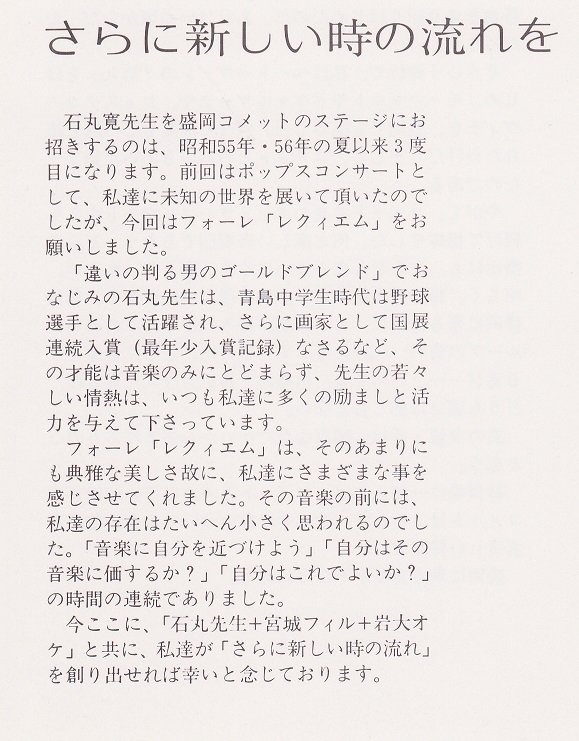 さらに新しい時の流れを
石丸寛先生を盛岡コメットのステージにお
招きするのは、昭和55年・56年の夏以来3度
目になります。前回はポップスコンサートと
して、私達に未知の世界を展いて頂いたので
したが、今回はフォーレ「レクィエム」をお
願いしました。
「違いの判る男のゴールドブレンド」でお
なじみの石丸先生は、青島中学生時代は野球
選手として活躍され、さらに画家として国展
連続入賞（最年少入賞記録）なさるなど、そ
の才能は音楽のみにとどまらず、先生の若々
しい情熱は、いつも私達に多くの励ましと活
力を与えて下さっています。
フォーレ「レクィエム」は、そのあまりに
も典雅な美しさ故に、私達にさまざまな事を
感じさせてくれました。その音楽の前には、
私達の存在はたいへん小さく思われるのでし
た。「音楽に自分を近づけよう」「自分はその
音楽に価するか？」「自分はこれでよいか？」
の時間の連続でありました。
今ここに、「石丸先生+宮城フィル+岩大オ
ケ」と共に、私達が「さらに新しい時の流れ」
を創り出せれば幸いと念じております。